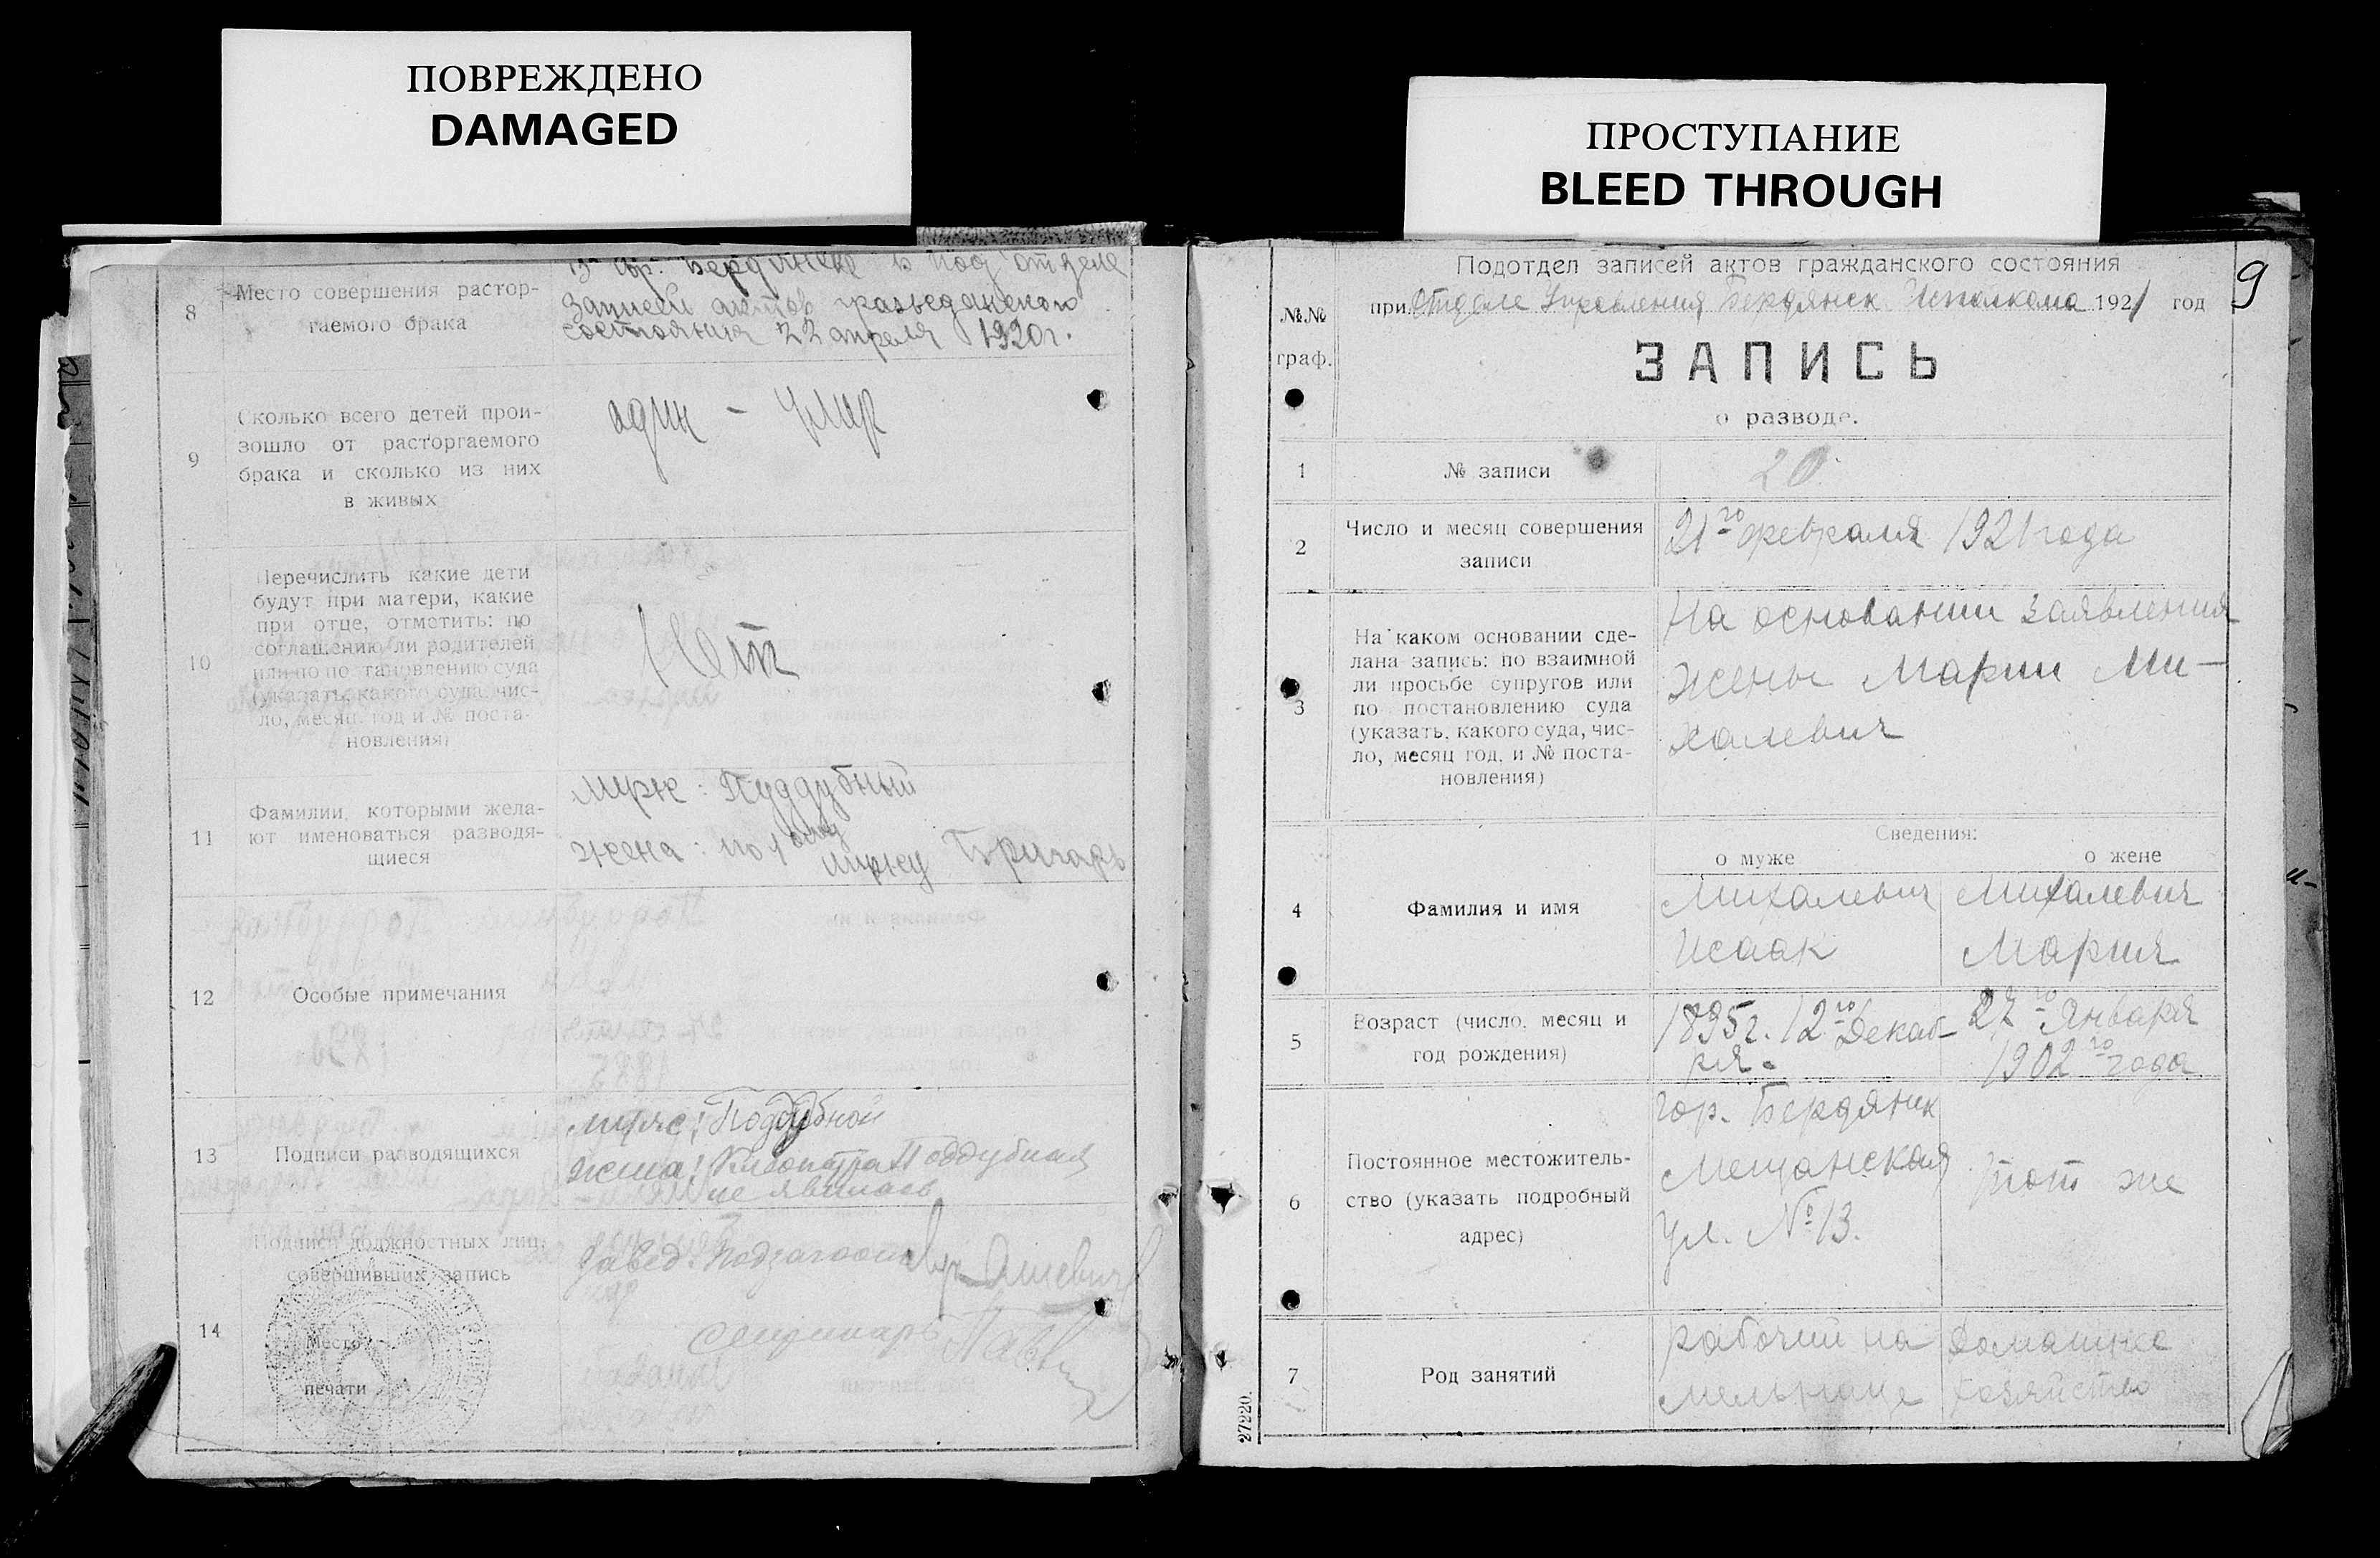 ПОВРЕЖДЕНО
DAMAGED
ПРОСТУПАНИЕ
BLEED THROUGH
8
Место совершения растор-
гаемого брака
В гор. Бердянске в под отделе
Записей актов гражданского
состояния 22 апреля 1920 г.
9
Сколько всего детей прои-
зошло от расторгаемого
брака и сколько из них
в живых
один - умер
10
Перечислить какие дети
будут при матери, какие
при отце, отметить: по
соглашению ли родителей
или по по тановлению суда
(указать, какого суда, чис-
ло, месяц, год и № поста-
новления)
Нет
11
Фамилии, которыми жела-
ют именоваться разводя-
щиеся
муж: Поддубный
жена: по 1 ому
мужу
12
Особые примечания
13
Подписи разводящихся
муж: Поддубной
жена: Клеопатра Поддубная
не явилась
14
Подписи должностных лиц,
совершивших запись
Место
печати
Завед.
9
№№
граф.
Подотдел записей актов гражданского состояния
при Отделе Управления Бердянск. Исполкома 1921 год
ЗАПИСЬ
о разводе.
1
№ записи
20
2
Число и месяц совершения
записи
21го февраля 1921 года
3
На каком основании сде-
лана запись: по взаимной
ли просьбе супругов или
по постановлению суда
(указать, какого суда, чис-
ло, месяц год, и № поста-
новления)
На основании заявления
жены Марии Ми-
халевич
Сведения:
о муже
о жене
4
Фамилия и имя
Михалевич
Исаак
Михалевич
Мария
5
Возраст (число, месяц и
год рождения)
1895 г. 12го Декаб-
ря.
27го Января
1902го года
6
Постоянное местожитель-
ство (указать подробный
адрес)
гор. Бердянск
Мещанская
ул. № 13.
тот же
7
Род занятий
рабочий на
мельнице
Домашнее
хозяйство
27220.